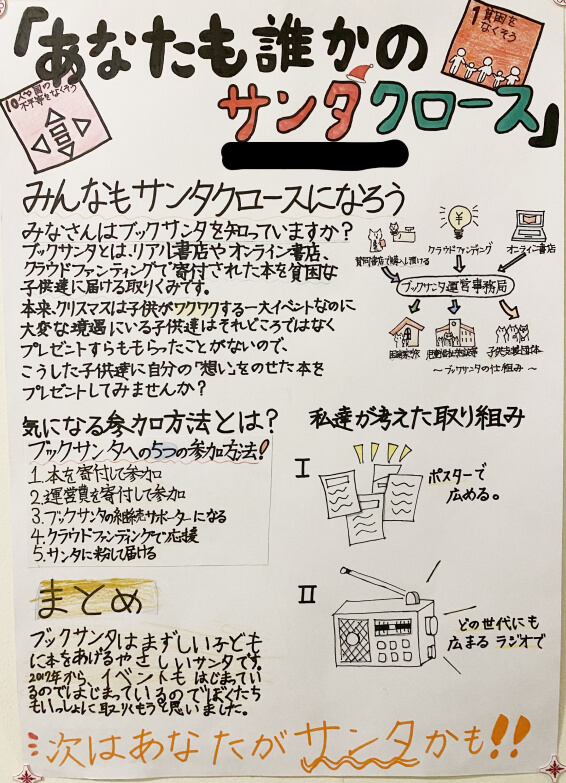 「あなたも誰かの
サンタクロース」
1 貧困を
なくそう
10 人や国の
不平等をなくそう
みんなもサンタクロースになろう
みなさんはブックサンタを知っていますか？
ブックサンタとは、リアル書店やオンライン書店、
クラウドファンティングで寄付された本を貧困な
子供達に届ける取りくみです。
本来、クリスマスは子供がワクワクする一大イベントなのに
大変な境遇にいる子供達はそれどころではなく
プレゼントすらももらったことがないので、
こうした子供達に自分の"想い"をのせた本を
プレゼントしてみませんか？
クラウドファンディング
オンライン書店
賛同書店で購入し預ける
ブックサンタ運営事務局
困窮家族
児童福祉施設等
子供支援団体
〜ブックサンタの仕組み〜
気になる参加方法とは？
ブックサンタへの5つの参加方法！
1.本を寄付して参加
2.運営費を寄付して参加
3.ブックサンタの継続サポーターになる
4.クラウドファンディングで応援
5.サンタに粉して届ける
私達が考えた取り組み
I
ポスターで
広める。
II
どの世代にも
広まるラジオで
まとめ
ブックサンタはまずしい子ども
に本をあげるやさしいサンタです。
2017年から、イベントもはじまってい
るのではじまっているのでぼくたち
もいっしょに取りくもうと思いました。
次はあなたがサンタかも!!